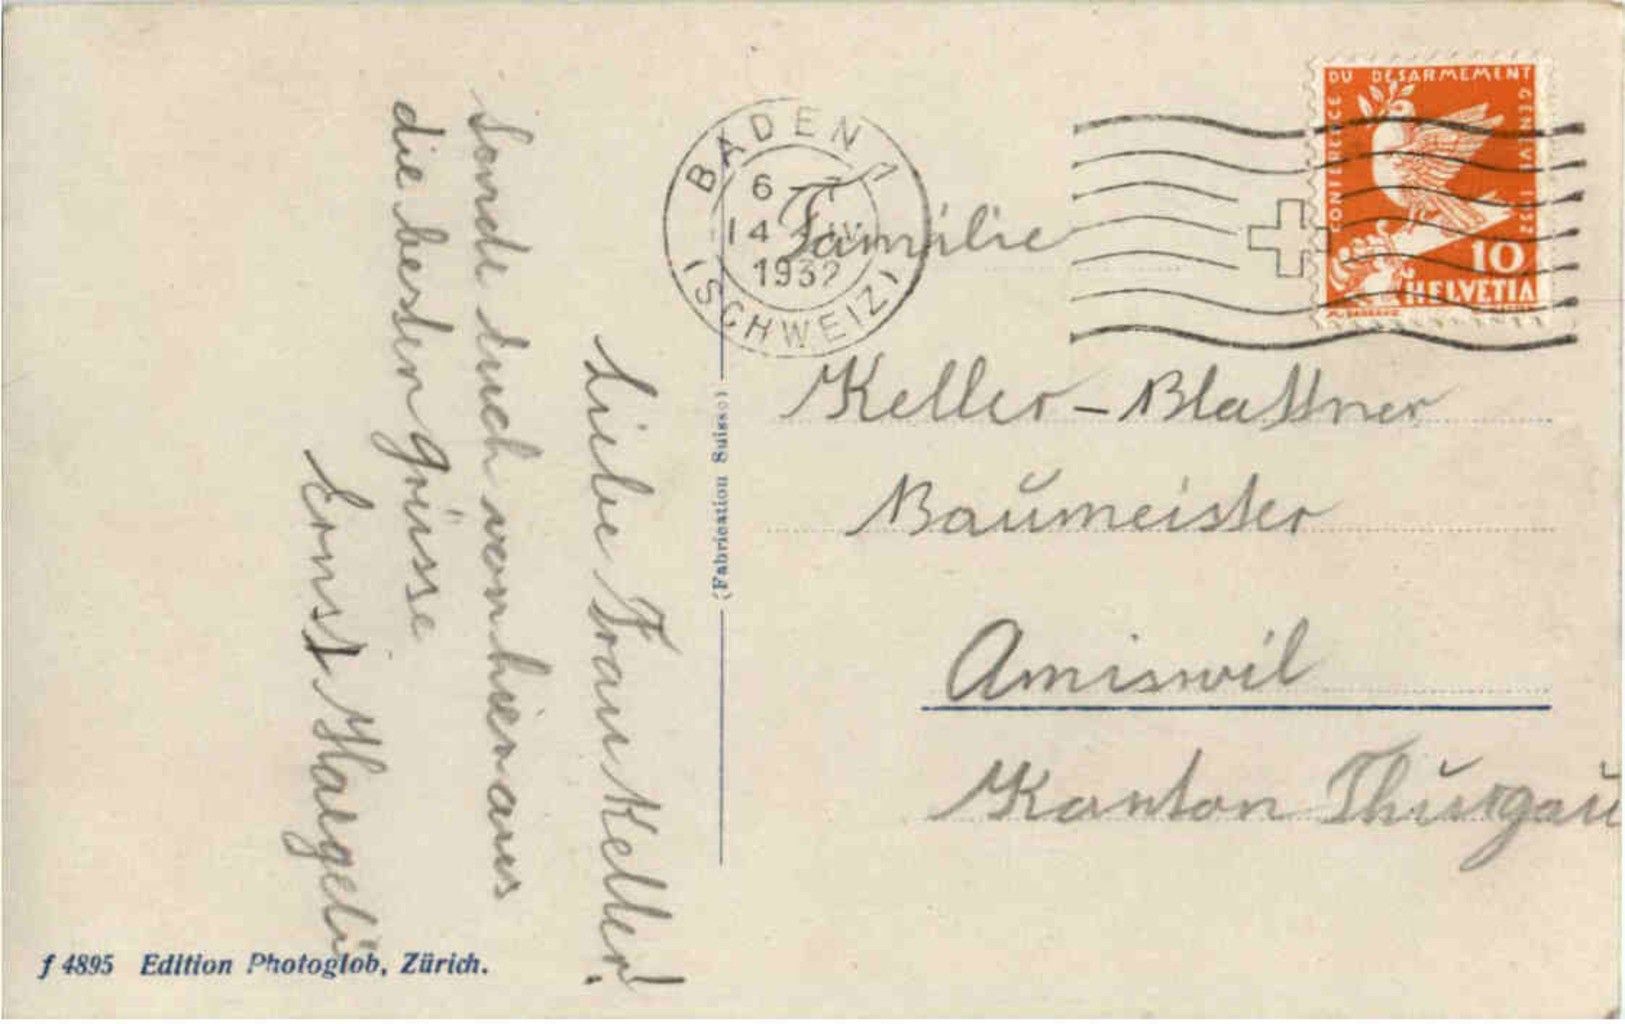 Liebe Frau Keller!
Sende Euch von hier aus
die besten Grüsse
Ernst Haegeli
(Fabrication Suisse)
f 4895 Edition Photoglob, Zürich.
BADEN 1
6 - 7
14
1932
(SCHWEIZ)
CONFERENCE DU DESARMEMENT GENEVE 1932
10
HELVETIA
Familie
Keller - Blattner
Baumeister
Amriswil
Kanton Thurgau